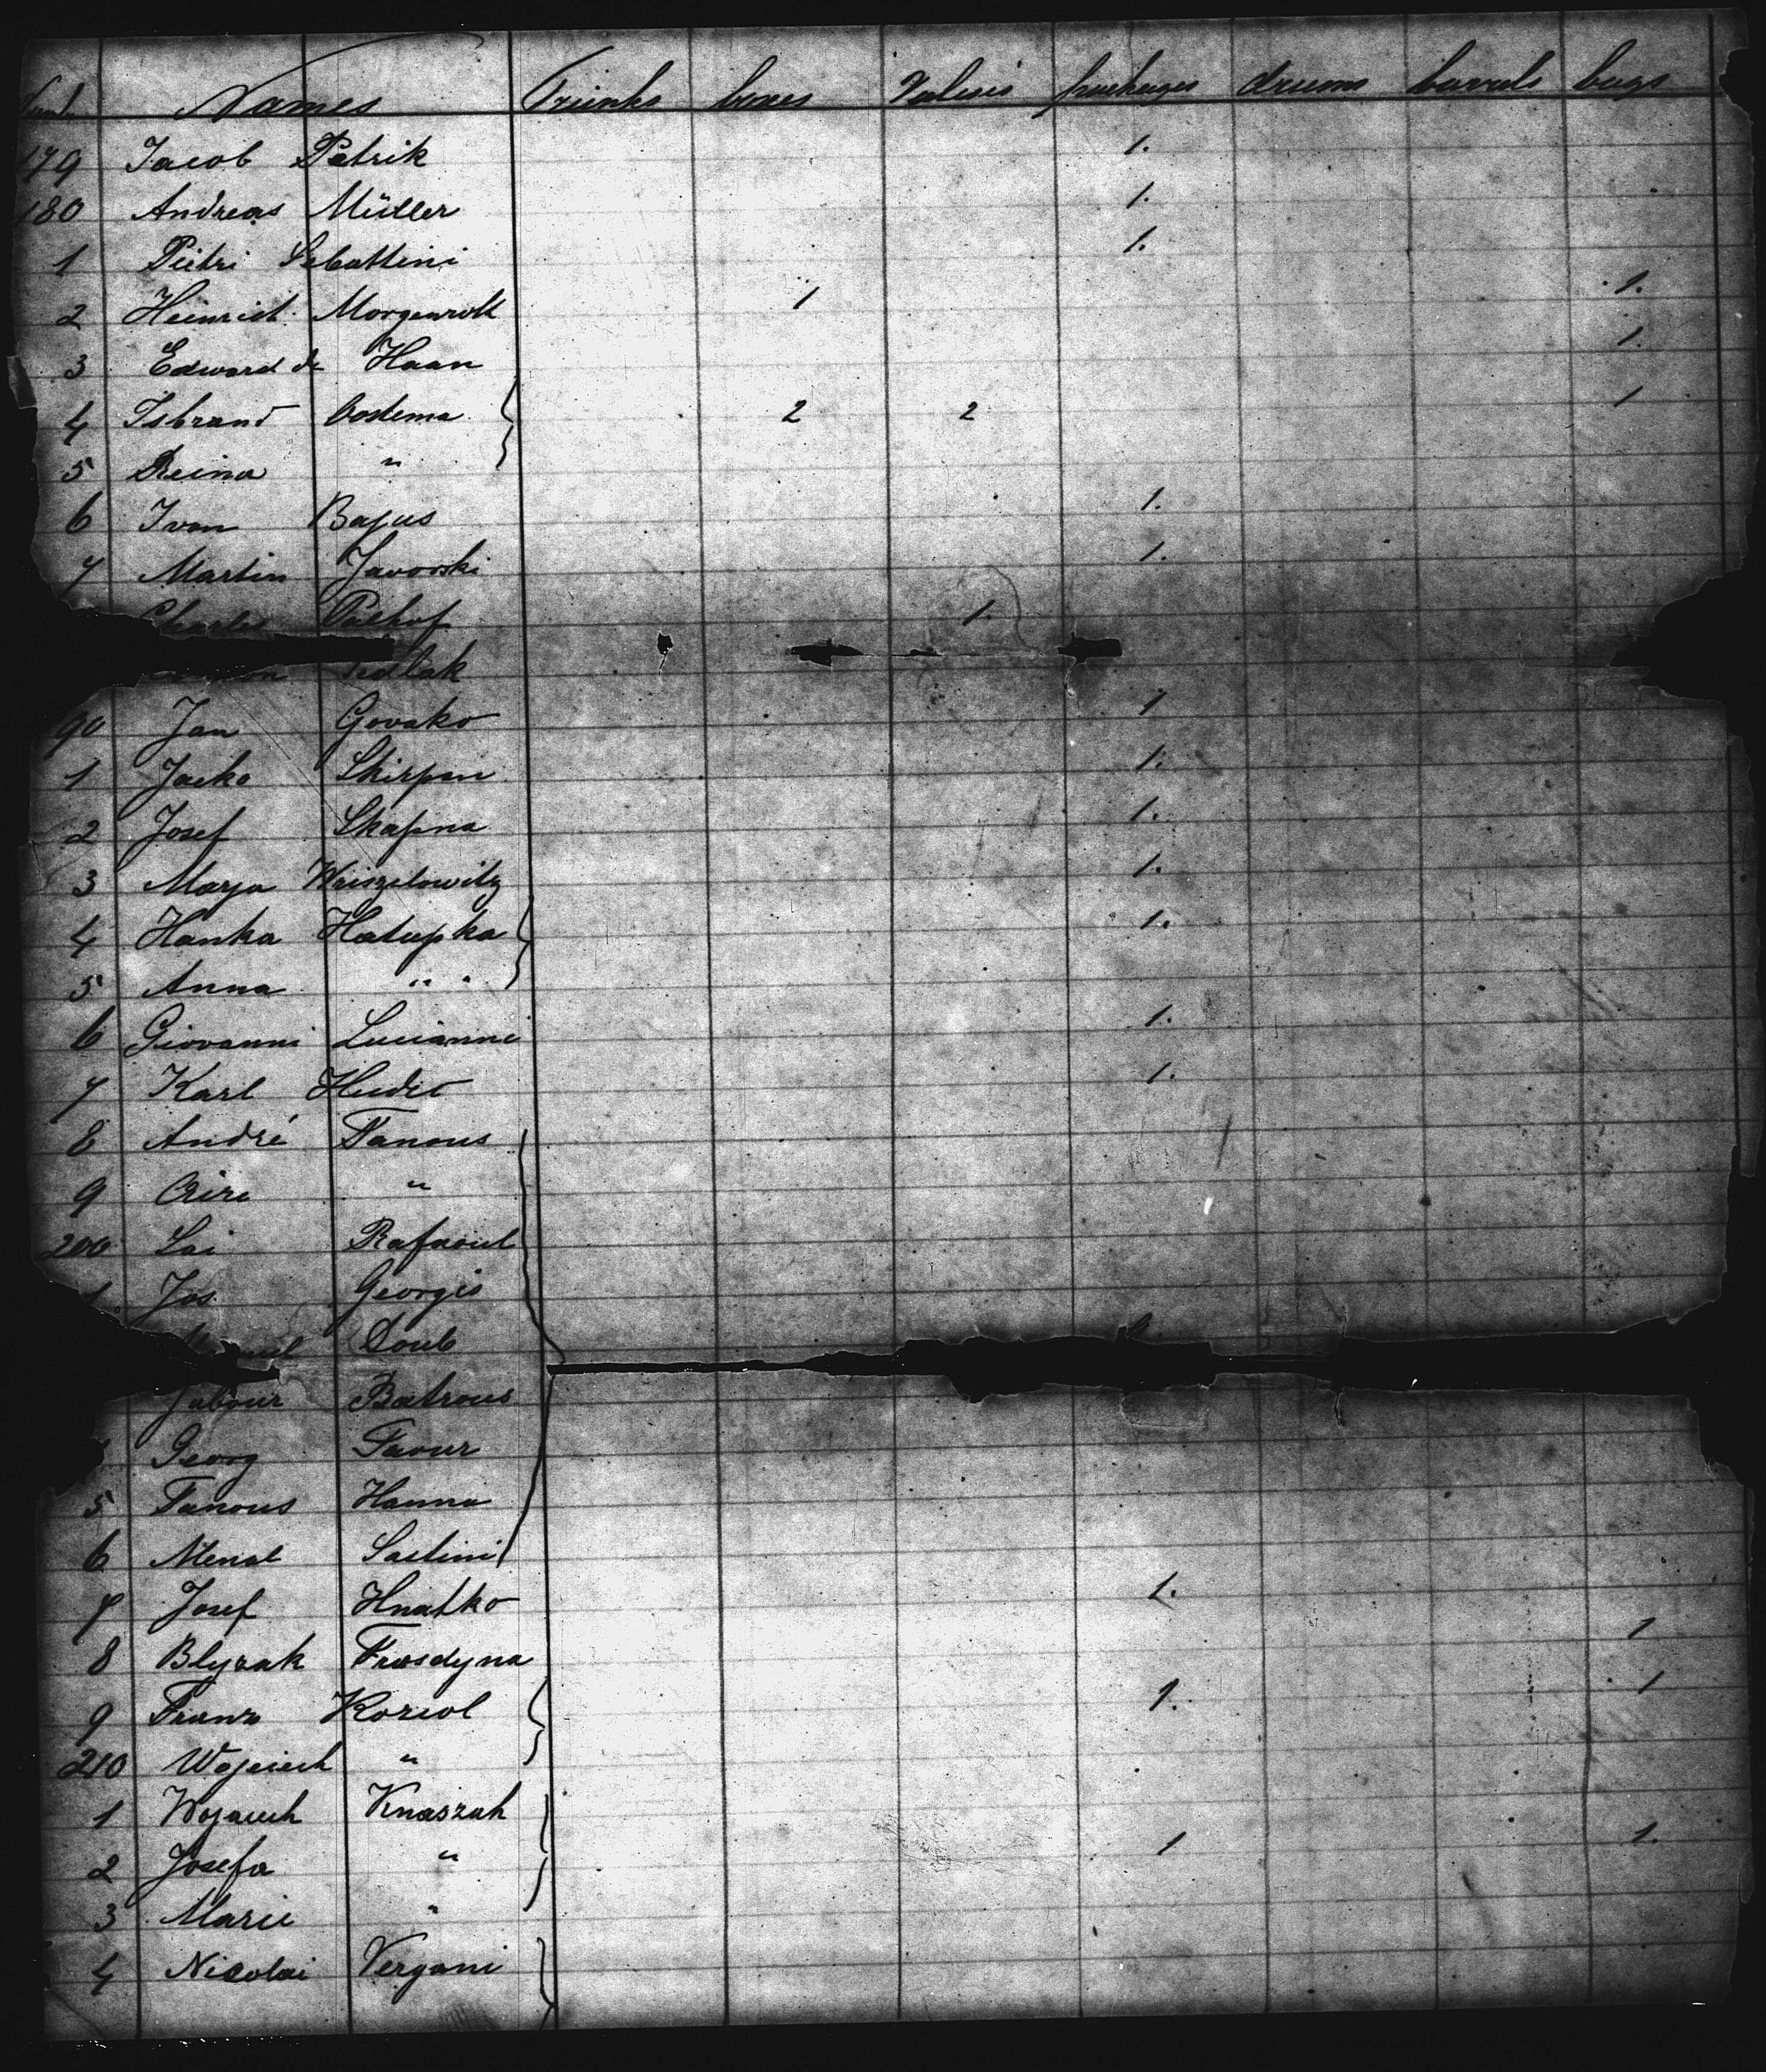 Names Trunks boxes Valises packages drums barrels bags
179 Jacob Petrik 1.
180 Andreas Müller 1.
1 Pietri Sebattini 1.
2 Heinrich Morgenroth 1 1.
3 Edward de Haan 1.
4 Isbrand Oostema } 2 2 1
5 Reina "
6 Ivan Bajus 1.
7 Martin Javorski 1.
Charles Palhof 1.
Sedlak
90 Jan Govako 1
1 Jacko Skirpan 1.
2 Josef Skapna 1.
3 Marja Weiszelowitz 1.
4 Hanka Hatupka } 1.
5 Anna "
6 Giovanni Lucianni 1.
7 Karl 1.
8 André Tanous
9 "
200 Rafaoul
1. Jos. Georgis
Doub
Jabour Batrous
Georg Taour
5 Tanous Hanna
6 Menat
7 Josef Hnatko 1.
8 Blyzak Frosdyna 1
9 Franz Koziol } 1. 1
210 Wojciech "
1 Wojciech Knaszak }
2 Josefa " 1 1.
3 Marie "
4 Nicolai Vergani }